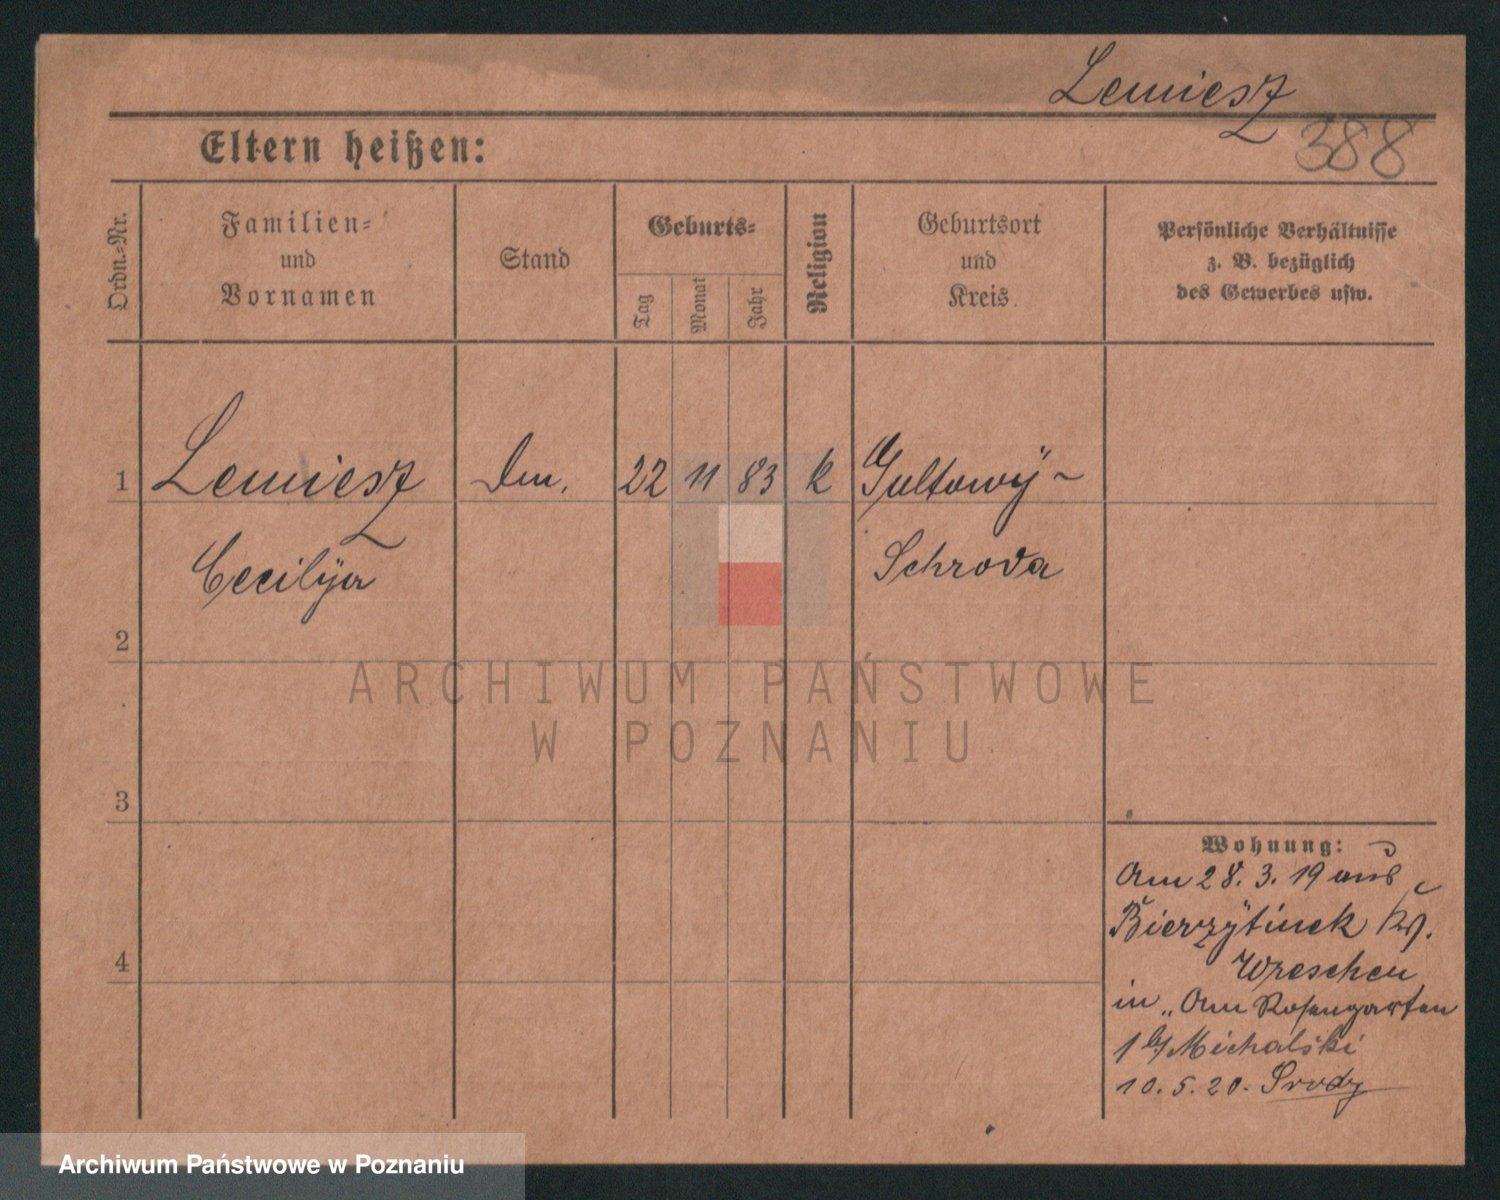 Lemiesz
388
Eltern heißen:
Ordn.-Nr.
Familien-
und
Vornamen
Stand
Geburts-
Tag
Monat
Jahr
Religion
Geburtsort
und
Kreis
Persönliche Verhältnisse
z. B. bezüglich
des Gewerbes usw.
1 Lemiesz 22 11 83 k Gultowÿ-
Cecilÿa Schroda
2
3
4
ARCHIWUM PAŃSTWOWE
W POZNANIU
Wohnung:
Am 28. 3. 19 aus
Wreschen
in „Am Rosengarten
1 b/Michalski
10. 5. 20. Srody
Archiwum Państwowe w Poznaniu